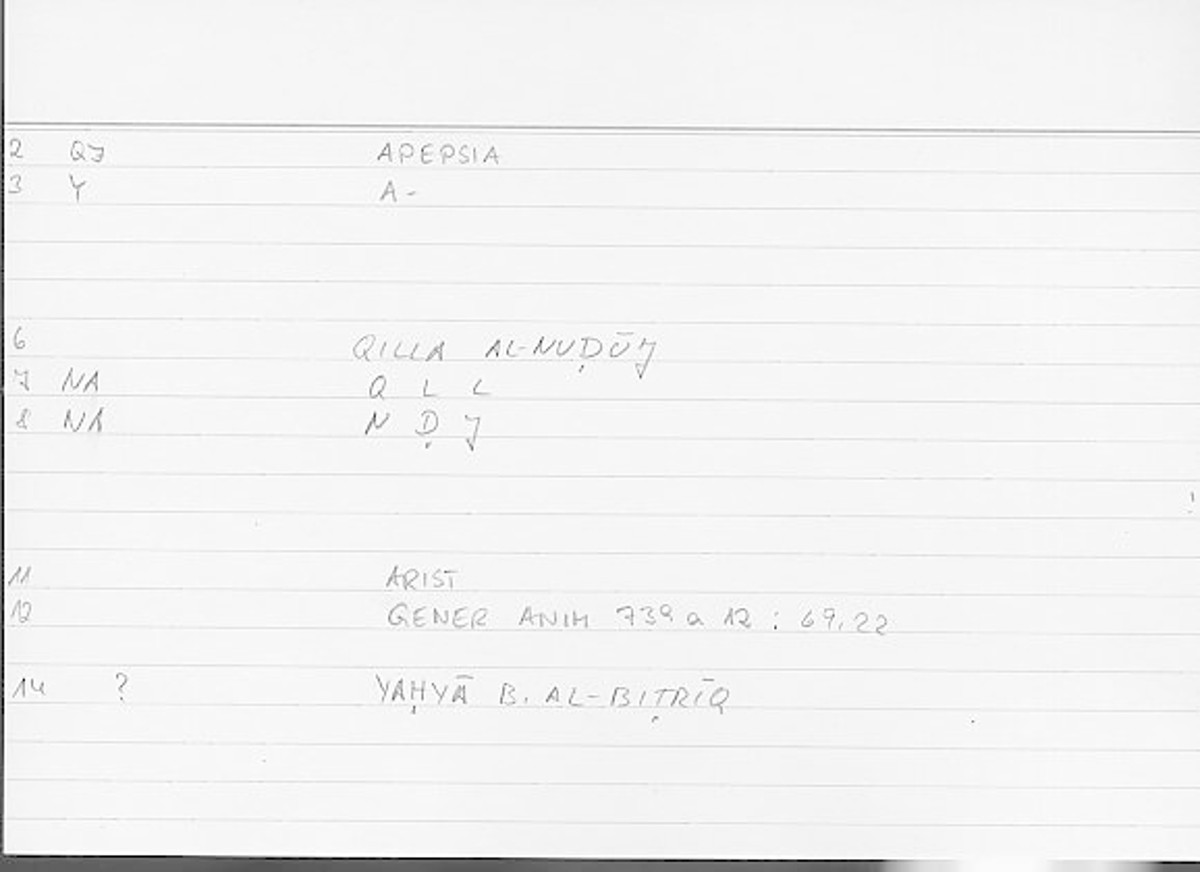 2 QJ APEPSIA
3 Y A-
6 QILLA AL-NUḌŪJ
7 NA Q L L
8 NA N Ḍ J
!
11 ARIST
12 GENER ANIM 739 a 12 : 69,22
14 ? YAḤYĀ B. AL-BIṬRĪQ